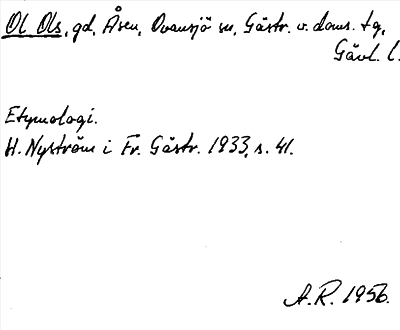 Ol Ols, gd, Åsen, Ovansjö sn, Gästr. v. doms. tg,
Gävl. l.
Etymologi.
H. Nyström i Fr. Gästr. 1933, s. 41.
A.R. 1956.